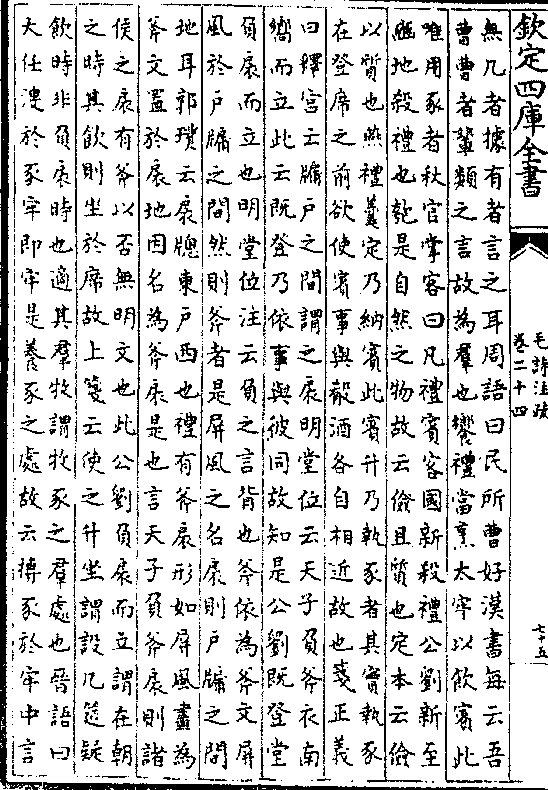 欽定四庫全書
毛詩注疏
卷二十四
七十五
無几者據有者言之耳周語曰民所曹好漢書每云吾
曹曹者輩類之言故為羣也饗禮當亨太牢以飲賓此
唯用豕者秋官掌客曰凡禮賓客國新殺禮公劉新至
豳地殺禮也匏是自然之物故云儉且質也定本云儉
以質也燕禮羹定乃納賓此賓升乃執豕者其實執豕
在登席之前欲使賓事與殽酒各自相近故也箋正義
曰釋宮云牖戶之間謂之扆明堂位云天子負斧衣南
嚮而立此云既登乃依事與彼同故知是公劉既登堂
負扆而立也明堂位注云負之言背也斧依為斧文屏
風於戶牖之間然則斧者是屏風之名扆則戶牖之間
地耳郭璞云扆牎東戶西也禮有斧扆形如屏風畫為
斧文置於扆地因名為斧扆是也言天子負斧扆則諸
侯之扆有斧以否無明文也此公劉負扆而立謂在朝
之時其飲則坐於席故上箋云使之升坐謂設几筵疑
飲時非負扆時也適其羣牧謂牧豕之羣處也晉語曰
大任溲於豕牢即牢是養豕之處故云搏豕於牢中言